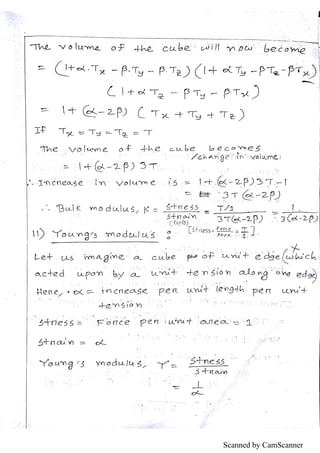 The volume of the cube will now become
= (1+α.Tx - β.Ty - β.Tz) (1+αTy - βTz - βTx)
(1+αTz - βTy - βTx)
= 1+(α-2β) (Tx + Ty + Tz)
If Tx = Ty = Tz = T
The volume of the cube becomes
/change in volume:
= 1+(α-2β) 3T
∴ Increase in volume is = 1+(α-2β)3T-1
= 3T(α-2β)
∴ Bulk modulus, K = Stress/Strain = T/1 / 3T(α-2β) = 1/3(α-2β)
[Stress = Force/Area = T/1]
11) Young's modulus :
Let us imagine a cube of unit edge (which
acted upon by a unit tension along one edge)
Here, α = increase per unit length per unit
tension.
Stress = Force per unit area = 1
Strain = α
Young's modulus, Y = Stress/Strain
= 1/α
Scanned by CamScanner